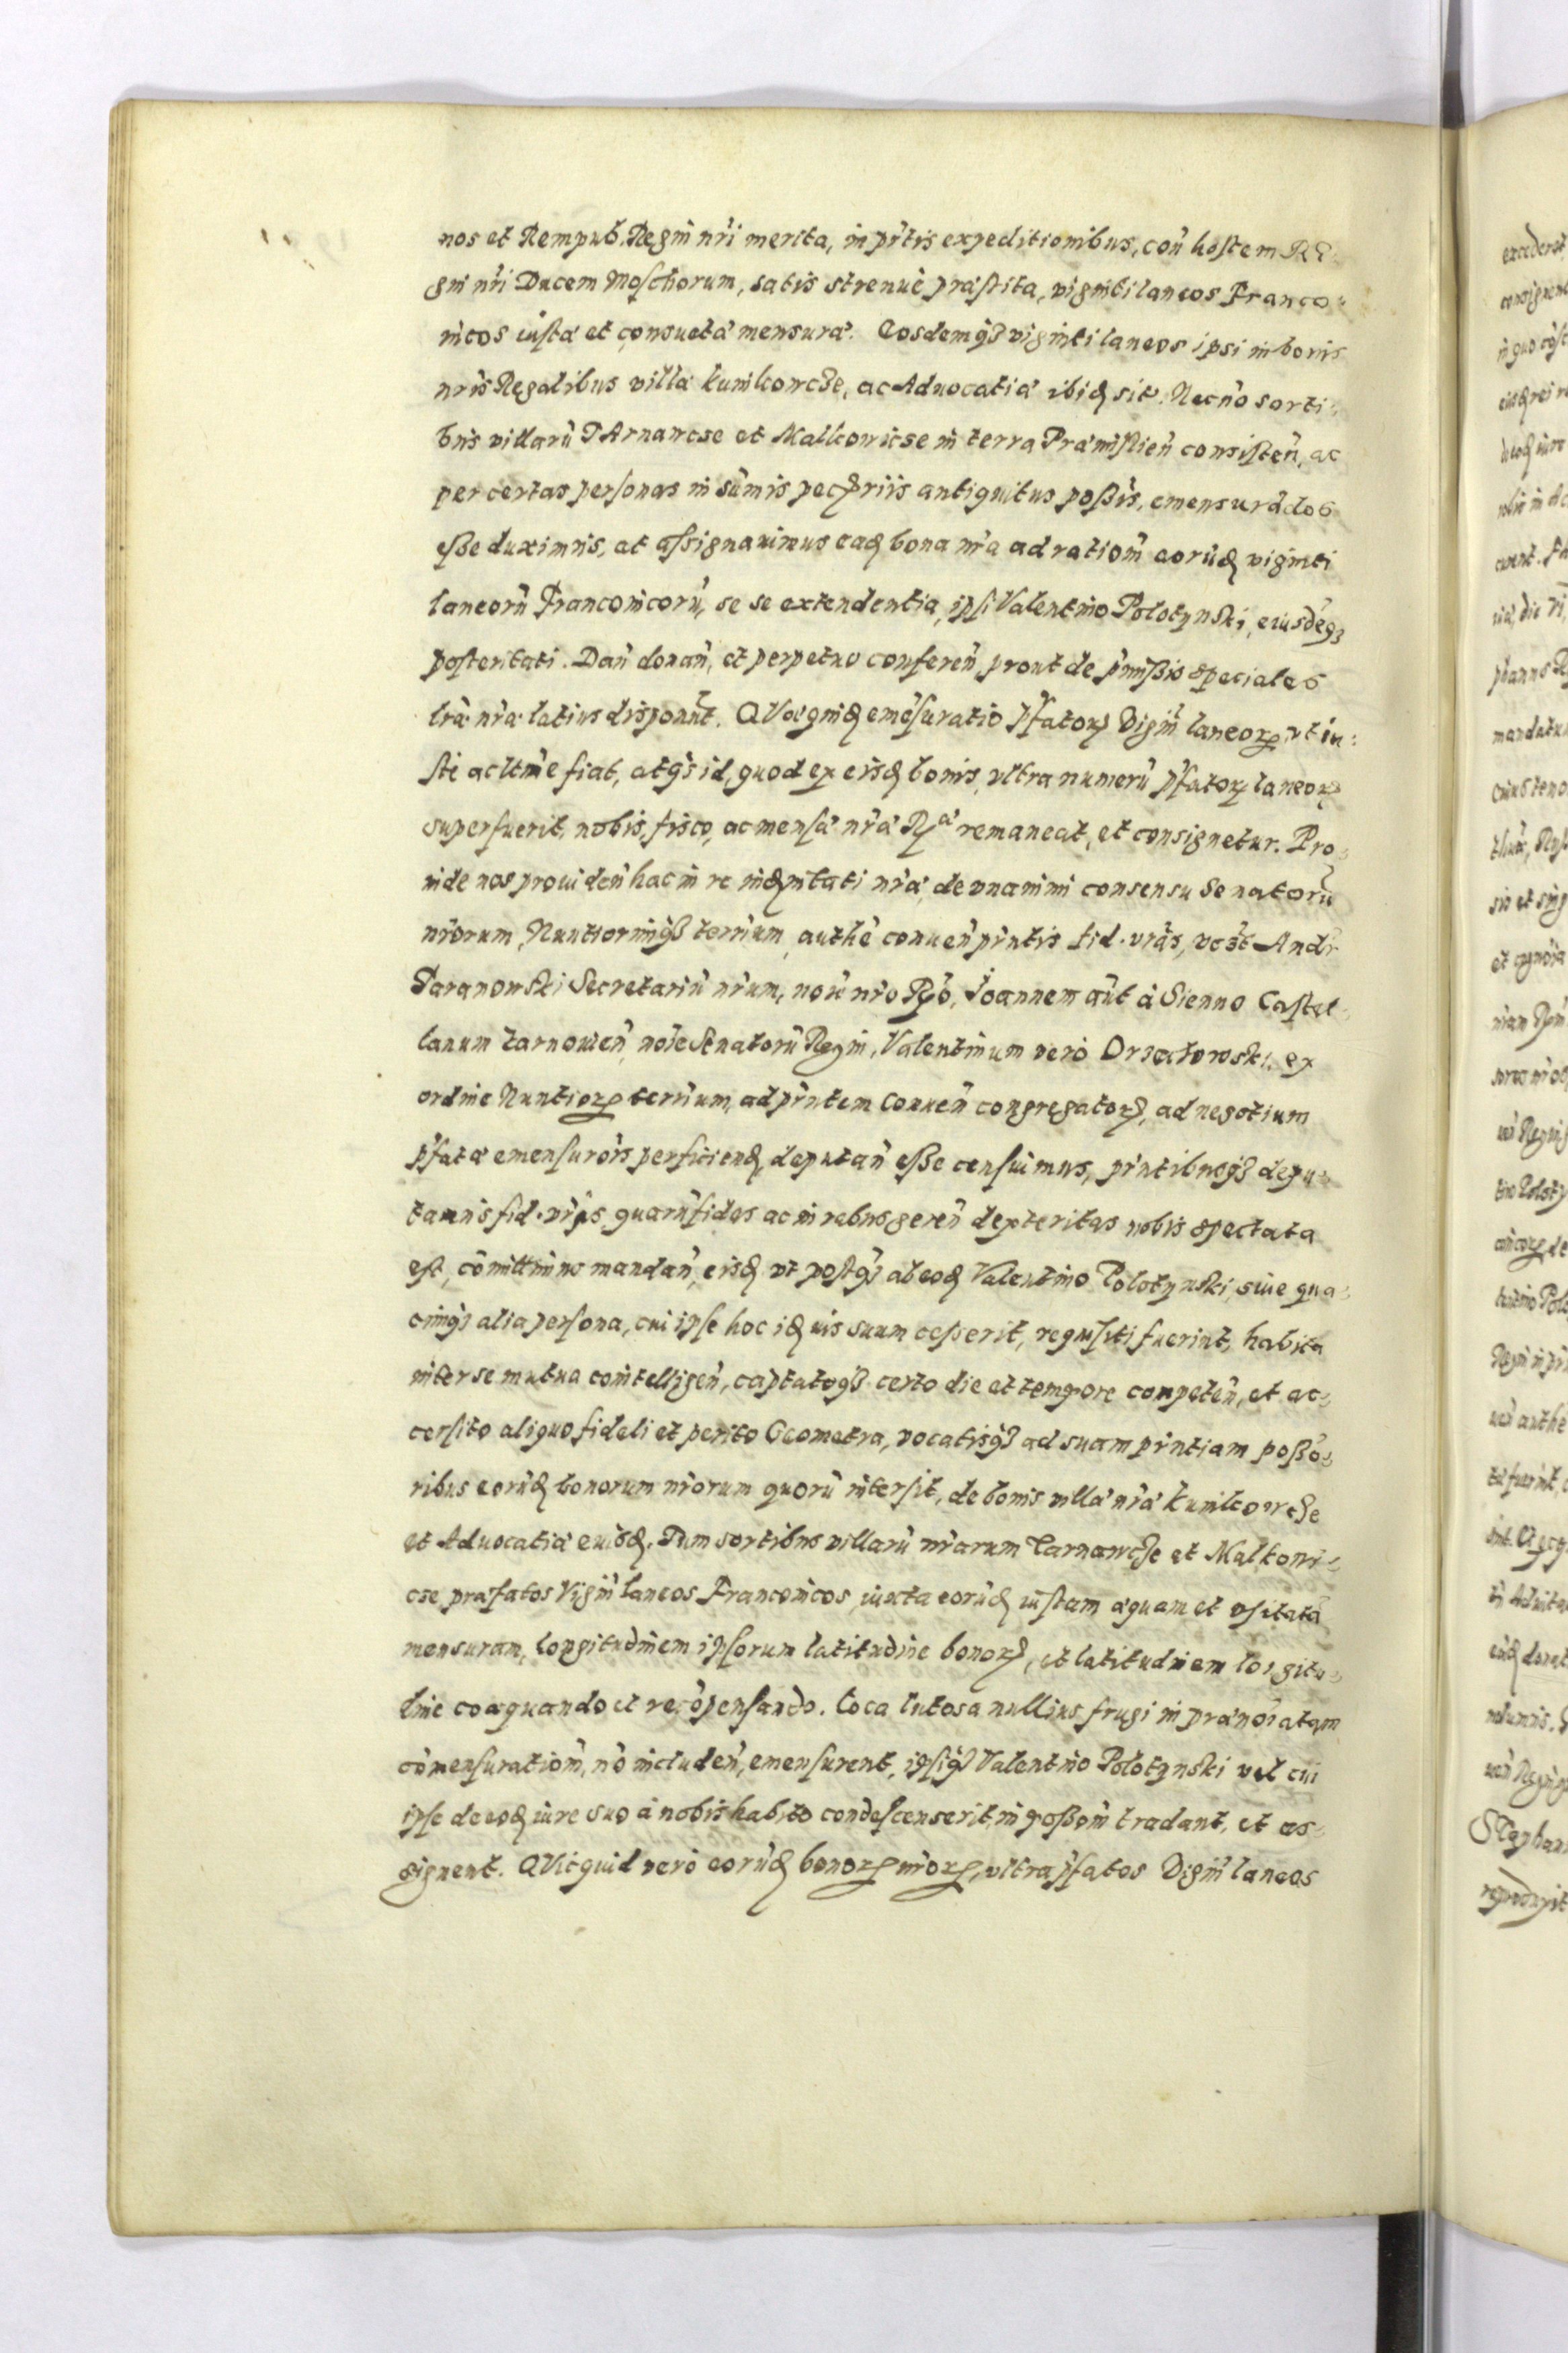 nos et Rempub. Regni nri merita, in prntis expeditionibus, con hostem Re
gni nri Ducem Moschorum, satis strenuè præstita, viginti laneos Franco
nicos iustæ et consuetæ mensuræ. Eosdemqȝ viginti laneos ipsi in bonis
nris Regalibus villæ Kunkowcze, ac Aduocatiæ ibidẽ sit. Necnõ sorti
bus villarũ Tarnawcse et Malkowicse in terra Præmislien consisten, ac
per certas personas in sũmis pecũriis antiquitus poßis, emensurãdos
esse duximus, at assignauimus eadẽ bona nra ad rationẽ eorũdẽ viginti
laneorũ Franconicorũ, se se extendentia, ipsi Valentino Polotynski, eiusdẽqȝ
posteritati. Dan donan, et perpetuo conferen, prout de pmißis speciales
lræ nræ latius disponũt. QVoquidẽ emẽsuratio pfatorꝝ Vigin laneorꝝ vt iu:
stè ac ltme fiat, atqȝ id, quod ex eisdẽ bonis, vltra numerũ pfatorꝝ laneorꝝ
superfuerit, nobis, fisco, ac mensæ nræ Rᵃ remaneat, et consignetur. Pro
inde nos prouiden hac in re indẽnitati nræ, de vnanimi consensu Senatorũ
nrorum, Nuntiorumqȝ terrium, authẽ conuen prntis fid. vras, vcȝt Andr
Taranowski Secretariũ nrum, noie nro Ryo, Joannem aũt à Sienno Castel
lanum tarnouien, noie Senatorũ Regni, Valentinum verò Orzechowski, ex
ordine Nuntiorꝝ terrium, ad prntem Conuen congregatorꝝ, ad negotium
pfatæ emensurois perficiendẽ, deputan eße censuimus, prntibusqȝ depu
tamus fid. vris quarũ fides ac in rebus geren dexteritas nobis spectata
est, cõmittimus mandan, eisdẽ vt postqȝ ab eodẽ Valentino Polotynski, siue qua
cunqȝ alia persona, cui ipse hoc idẽ ius suum cesserit, requisiti fuerint, habita
inter se mutua cointelligen, captatoqȝ certo die et tempore competen, et ac
cersito aliquo fideli et perito Geometra, vocatisqȝ ad suam prntiam poßo
ribus eorũdẽ bonorum nrorum quorũ intersit, de bonis villæ nræ Kunkowcze
et Aduocatiæ eiusdẽ. Tum sortibus villarũ nrarum Tarnawcze et Malkowi
cse præfatos Vigin laneos Franconicos, iuxta eorũdẽ iustam æquam et vsitatã
mensuram, longitudinem ipsorum latitudine bonorꝝ, et latitudinem longitu
dine coæquando et recõpensando. Loca lutosa nullius frugi in prænoiatam
cõmensurationẽ, nõ includen, emensurent, ipsiqȝ Valentino Polotynski vel cui
ipse de eodẽ iure suo à nobis habito condescenserit, in poßonẽ tradant, et as
signent. QVicquid verò eorũdẽ bonorꝝ nrorꝝ, vltra pfatos Vigin laneos